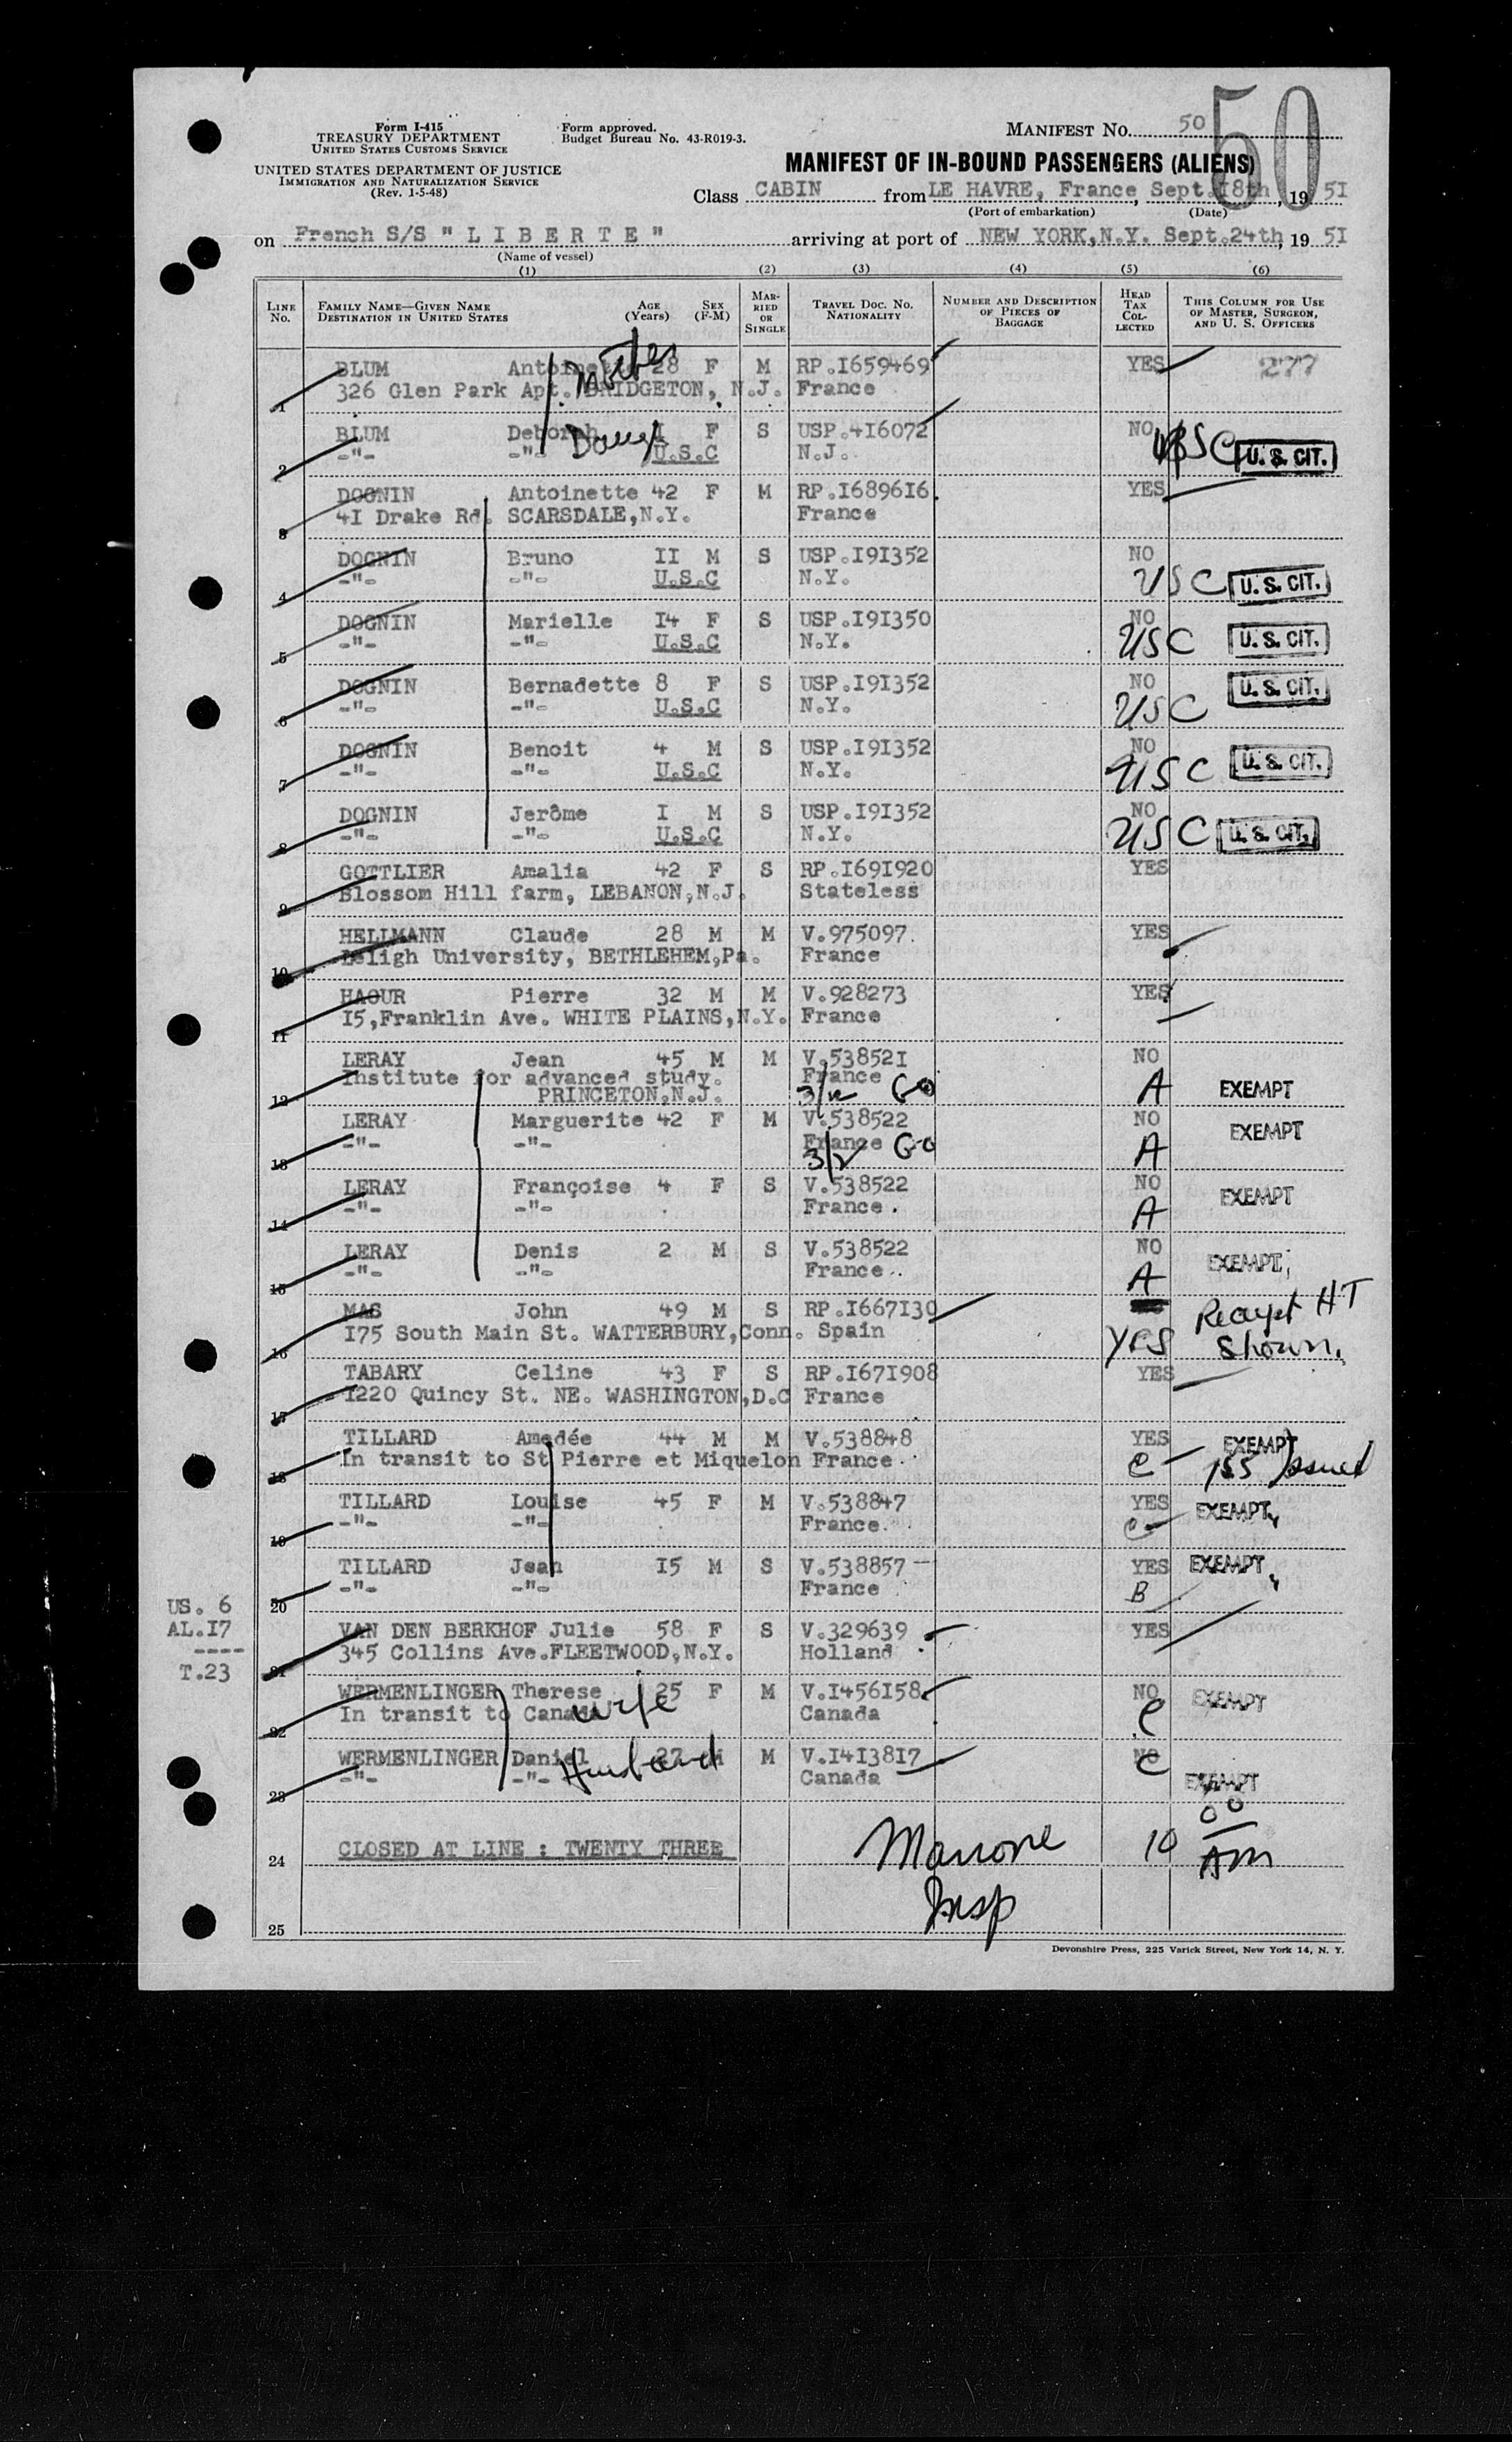 Form I-415
TREASURY DEPARTMENT
UNITED STATES CUSTOMS SERVICE
UNITED STATES DEPARTMENT OF JUSTICE
IMMIGRATION AND NATURALIZATION SERVICE
(Rev. 1-5-48)
Form approved.
Budget Bureau No. 43-R019-3.
MANIFEST No. 50
50
MANIFEST OF IN-BOUND PASSENGERS (ALIENS)
Class CABIN from LE HAVRE, France, Sept.18th, 1951
(Port of embarkation) (Date)
on French S/S "LIBERTE" arriving at port of NEW YORK,N.Y. Sept.24th, 1951
(Name of vessel)
(1) (2) (3) (4) (5) (6)
LINE No. FAMILY NAME—GIVEN NAME DESTINATION IN UNITED STATES AGE (Years) SEX (F-M) MARRIED OR SINGLE TRAVEL DOC. NO. NATIONALITY NUMBER AND DESCRIPTION OF PIECES OF BAGGAGE HEAD TAX COLLECTED THIS COLUMN FOR USE OF MASTER, SURGEON, AND U. S. OFFICERS
BLUM Antoinette 28 F M RP.1659469 YES 277
1 326 Glen Park Apt. BRIDGETON, N.J. France
Mother
BLUM Deborah I F S USP.416072 NO
2 -"- -"- U.S.C N.J. USC U. S. CIT.
DOGNIN Antoinette 42 F M RP.1689616. YES
3 4I Drake Rd. SCARSDALE,N.Y. France
DOGNIN Bruno II M S USP.191352 NO
4 -"- -"- U.S.C N.Y. USC U. S. CIT.
DOGNIN Marielle 14 F S USP.191350 NO
5 -"- -"- U.S.C N.Y. USC U. S. CIT.
DOGNIN Bernadette 8 F S USP.191352 NO
6 -"- -"- U.S.C N.Y. USC U. S. CIT.
DOGNIN Benoit 4 M S USP.191352 NO
7 -"- -"- U.S.C N.Y. USC U. S. CIT.
DOGNIN Jerôme I M S USP.191352 NO
8 -"- -"- U.S.C N.Y. USC U. S. CIT.
GOTTLIER Amalia 42 F S RP.1691920 YES
9 Blossom Hill farm, LEBANON,N.J. Stateless
HELLMANN Claude 28 M M V.975097. YES
10 Leligh University, BETHLEHEM,Pa. France
HAOUR Pierre 32 M M V.928273 YES
11 15,Franklin Ave. WHITE PLAINS,N.Y. France
LERAY Jean 45 M M V.538521 NO
Institute for advanced study. France
12 PRINCETON.N.J. 3/12 GO A EXEMPT
LERAY Marguerite 42 F M V.538522 NO EXEMPT
13 -"- -"- France GO A
3/2
LERAY Françoise 4 F S V.538522 NO EXEMPT
14 -"- -"- France. A
LERAY Denis 2 M S V.538522 NO EXEMPT
15 -"- -"- France.. A
MAS John 49 M S RP.1667130 Receipt HT
16 175 South Main St. WATTERBURY,Conn. Spain YES Shown.
TABARY Celine 43 F S RP.1671908 YES
17 1220 Quincy St. NE. WASHINGTON,D.C France
TILLARD Amedée 44 M M V.538848 YES EXEMPT
18 In transit to St Pierre et Miquelon France. C 155 Issued
TILLARD Louise 45 F M V.538847 YES EXEMPT
19 -"- -"- France. C
TILLARD Jean 15 M S V.538857 YES EXEMPT
20 -"- -"- France B
US. 6
AL.17
----
T.23
VAN DEN BERKHOF Julie 58 F S V.329639 YES
21 345 Collins Ave.FLEETWOOD,N.Y. Holland
WERMENLINGER Therese 25 F M V.1456158. NO EXEMPT
22 In transit to Canada wife Canada C
WERMENLINGER Daniel 27 M M V.1413817 NO C
23 -"- -"- Husband Canada EXEMPT
24 CLOSED AT LINE : TWENTY THREE Marrone 10 00 AM
Insp
25
Devonshire Press, 225 Varick Street, New York 14, N. Y.